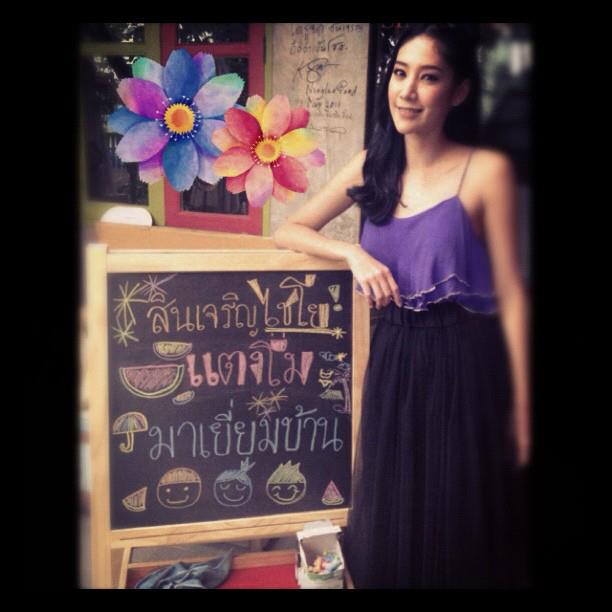 สินเจริญไชโย!
แตงโม
มาเยี่ยมบ้าน